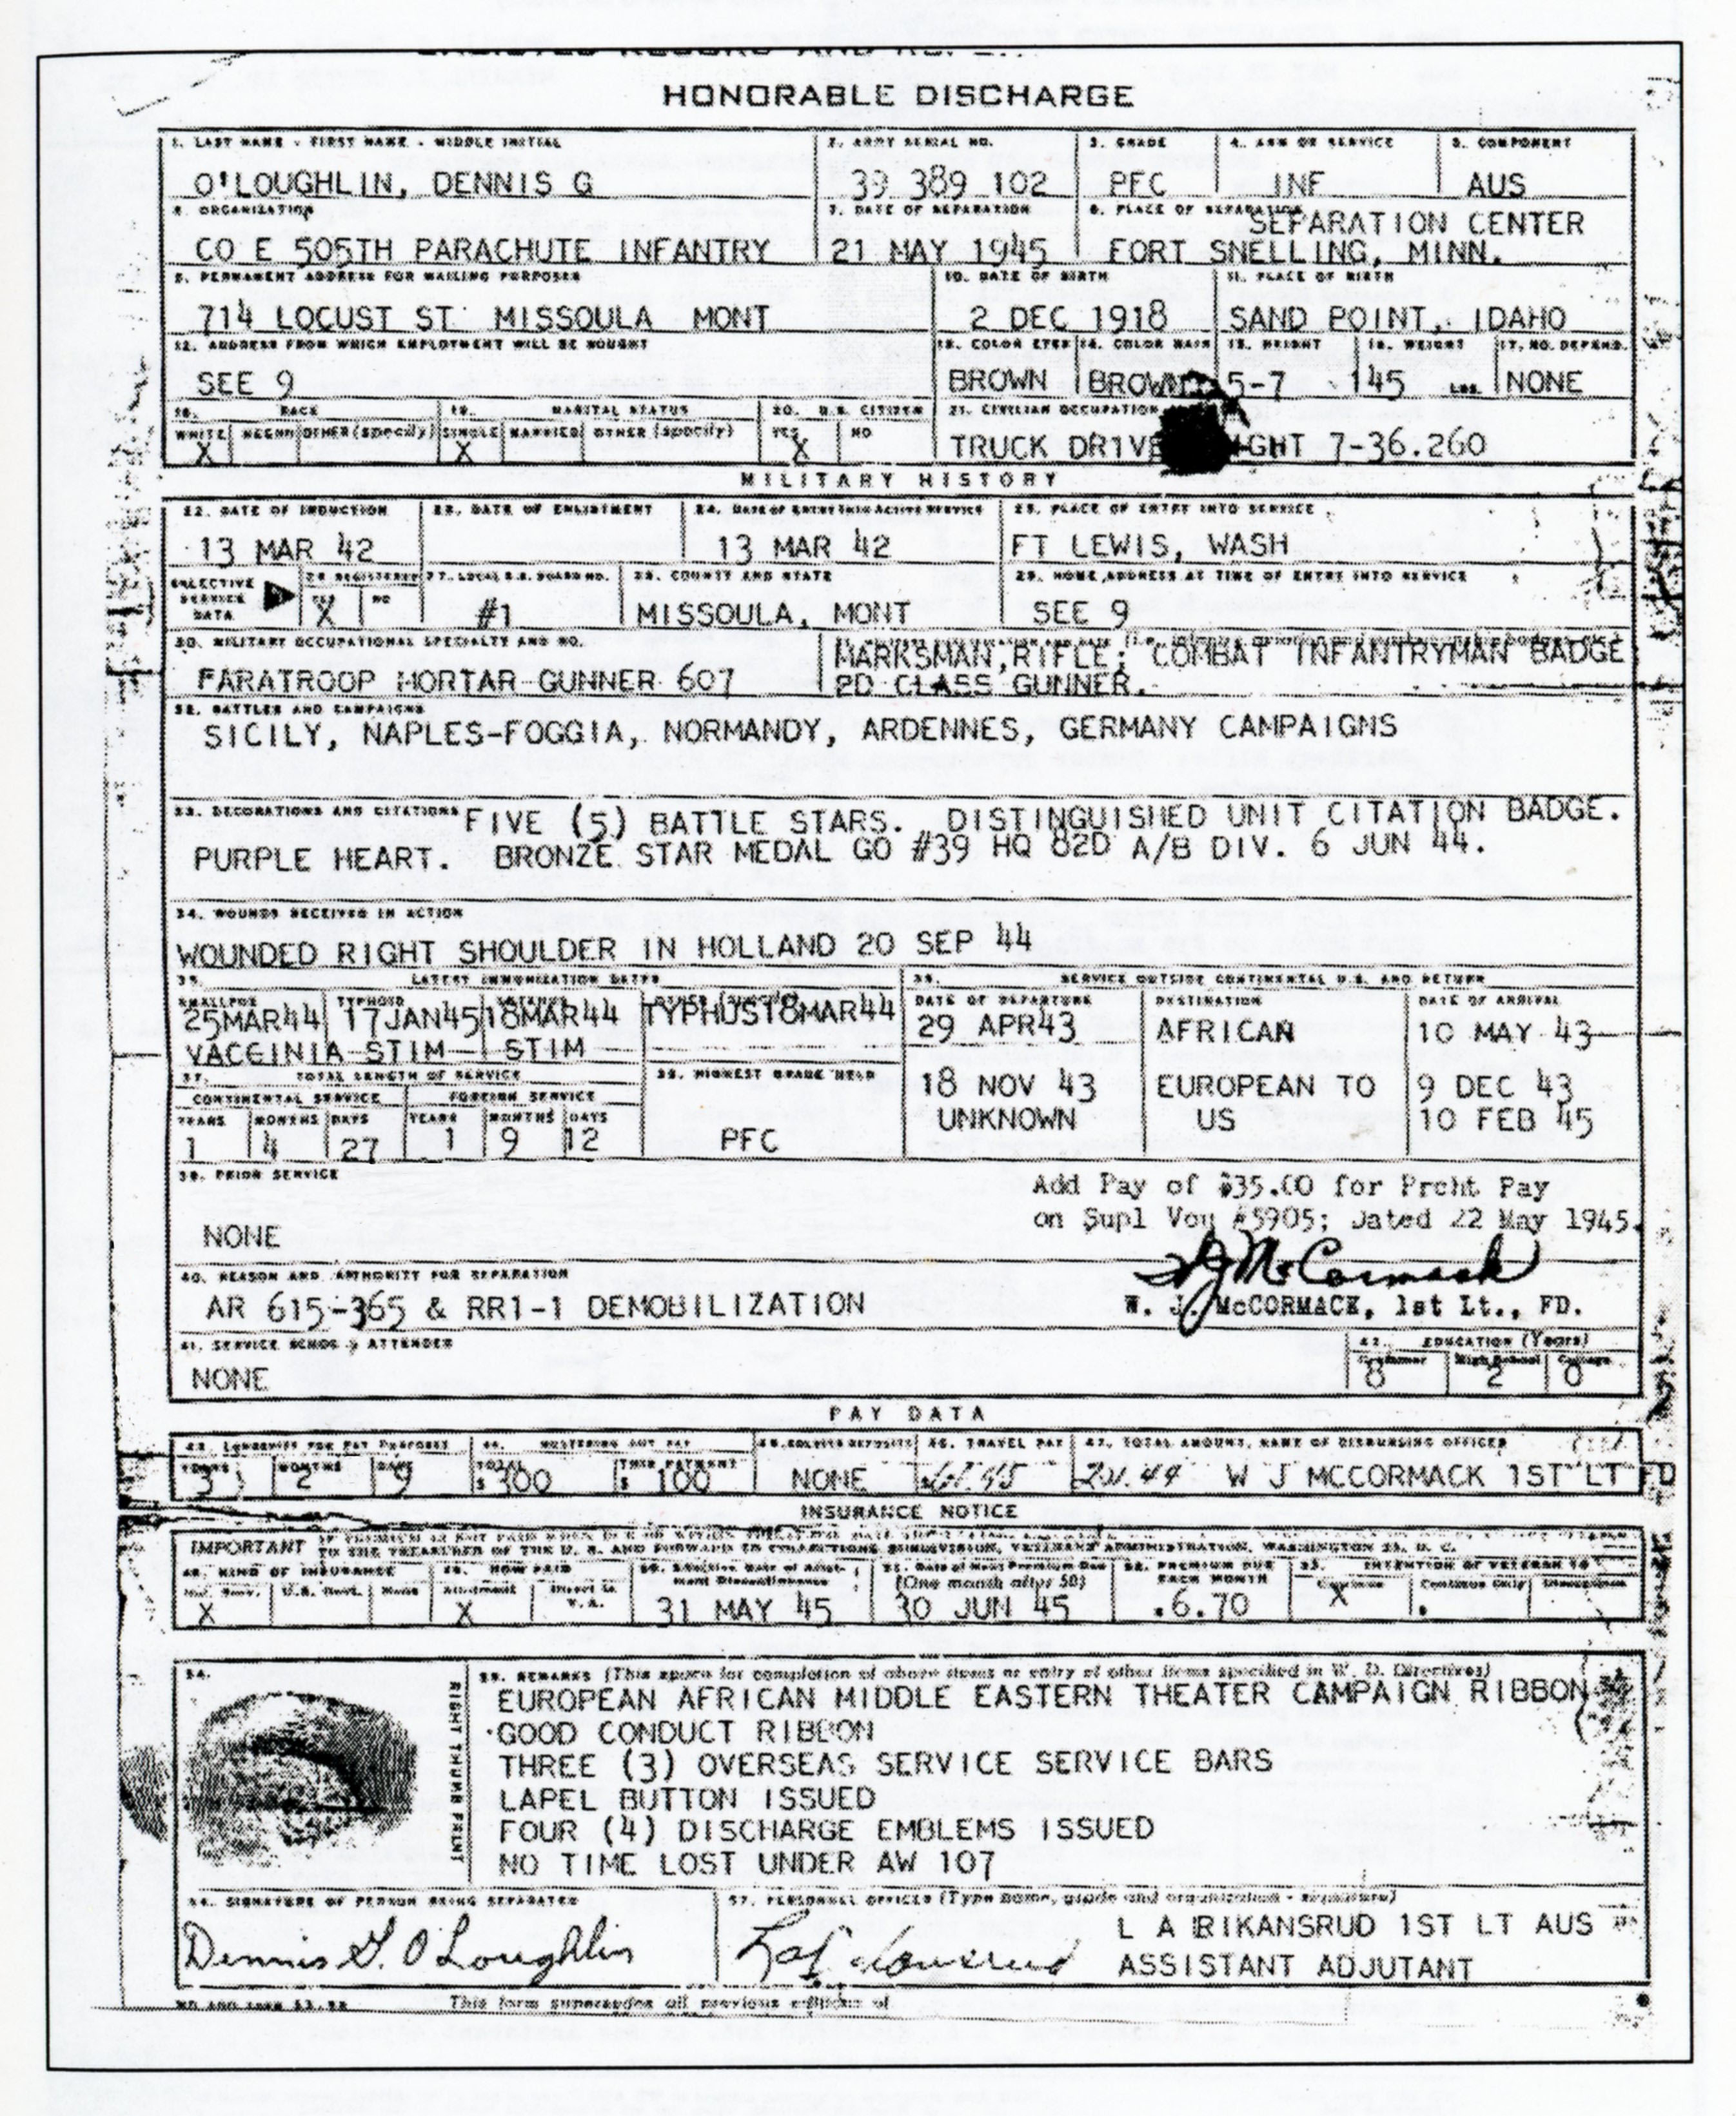 HONORABLE DISCHARGE
1. LAST NAME - FIRST NAME - MIDDLE INITIAL 2. ARMY SERIAL NO. 3. GRADE 4. ARM OR SERVICE 5. COMPONENT
O'LOUGHLIN, DENNIS G 39 389 102 PFC INF AUS
6. ORGANIZATION 7. DATE OF SEPARATION 8. PLACE OF SEPARATION
SEPARATION CENTER
CO E 505TH PARACHUTE INFANTRY 21 MAY 1945 FORT SNELLING, MINN.
9. PERMANENT ADDRESS FOR MAILING PURPOSES 10. DATE OF BIRTH 11. PLACE OF BIRTH
714 LOCUST ST MISSOULA MONT 2 DEC 1918 SAND POINT, IDAHO
12. ADDRESS FROM WHICH EMPLOYMENT WILL BE SOUGHT 13. COLOR EYES 14. COLOR HAIR 15. HEIGHT 16. WEIGHT 17. NO. DEPEND.
SEE 9 BROWN BROWN 5-7 145 LBS. NONE
18. RACE 19. MARITAL STATUS 20. U.S. CITIZEN 21. CIVILIAN OCCUPATION
WHITE NEGRO OTHER (specify) SINGLE MARRIED OTHER (specify) YES NO
X X X TRUCK DRIVE GHT 7-36.260
MILITARY HISTORY
22. DATE OF INDUCTION 23. DATE OF ENLISTMENT 24. DATE OF ENTRY INTO ACTIVE SERVICE 25. PLACE OF ENTRY INTO SERVICE
13 MAR 42 13 MAR 42 FT LEWIS, WASH
SELECTIVE SERVICE DATA 26 REGISTERED YES NO 27. LOCAL S.S. BOARD NO. 28. COUNTY AND STATE 29. HOME ADDRESS AT TIME OF ENTRY INTO SERVICE
X #1 MISSOULA, MONT SEE 9
30. MILITARY OCCUPATIONAL SPECIALTY AND NO.
MARKSMAN, RIFLE; COMBAT INFANTRYMAN BADGE
PARATROOP MORTAR GUNNER 607 2D CLASS GUNNER.
32. BATTLES AND CAMPAIGNS
SICILY, NAPLES-FOGGIA, NORMANDY, ARDENNES, GERMANY CAMPAIGNS
33. DECORATIONS AND CITATIONS FIVE (5) BATTLE STARS. DISTINGUISHED UNIT CITATION BADGE.
PURPLE HEART. BRONZE STAR MEDAL GO #39 HQ 82D A/B DIV. 6 JUN 44.
34. WOUNDS RECEIVED IN ACTION
WOUNDED RIGHT SHOULDER IN HOLLAND 20 SEP 44
35. LATEST IMMUNIZATION DATES 36. SERVICE OUTSIDE CONTINENTAL U.S. AND RETURN
SMALLPOX TYPHOID TETANUS DATE OF DEPARTURE DESTINATION DATE OF ARRIVAL
25MAR44 17JAN45 18MAR44 TYPHUS18MAR44 29 APR43 AFRICAN 10 MAY 43
VACCINIA STIM STIM
37. TOTAL LENGTH OF SERVICE 38. HIGHEST GRADE HELD
CONTINENTAL SERVICE FOREIGN SERVICE 18 NOV 43 EUROPEAN TO 9 DEC 43
YEARS MONTHS DAYS YEARS MONTHS DAYS UNKNOWN US 10 FEB 45
1 4 27 1 9 12 PFC
39. PRIOR SERVICE
Add Pay of $35.00 for Prcht Pay
on Supl Vou #5905; Dated 22 May 1945.
NONE
W J McCormack
40. REASON AND AUTHORITY FOR SEPARATION
AR 615-365 & RR1-1 DEMOBILIZATION W. J. McCORMACK, 1st Lt., FD.
41. SERVICE SCHOOLS ATTENDED 42. EDUCATION (Years)
Grammar High School College
NONE 8 2 0
PAY DATA
43. LONGEVITY FOR PAY PURPOSES 44. MUSTERING OUT PAY 45. SOLDIER DEPOSITS 46. TRAVEL PAY 47. TOTAL AMOUNT, NAME OF DISBURSING OFFICER
YEARS MONTHS DAYS TOTAL THIS PAYMENT
3 2 9 $ 300 $ 100 NONE W J MCCORMACK 1ST LT FD
INSURANCE NOTICE
IMPORTANT
TO THE TREASURER OF THE U. S. AND FORWARD TO COLLECTIONS SUBDIVISION, VETERANS ADMINISTRATION, WASHINGTON 25, D. C.
48. KIND OF INSURANCE 49. HOW PAID 50. Effective Date of Allotment Discontinuance 51. Date of Next Premium Due (One month after 50) 52. PREMIUM DUE EACH MONTH 53. INTENTION OF VETERAN TO
Nat. Serv. U.S. Govt. None Allotment Direct to V.A. Continue Continue Only Discontinue
X X 31 MAY 45 30 JUN 45 6.70 X
54. RIGHT THUMB PRINT
55. REMARKS (This space for completion of above items or entry of other items specified in W. D. Directives)
EUROPEAN AFRICAN MIDDLE EASTERN THEATER CAMPAIGN RIBBON
GOOD CONDUCT RIBBON
THREE (3) OVERSEAS SERVICE SERVICE BARS
LAPEL BUTTON ISSUED
FOUR (4) DISCHARGE EMBLEMS ISSUED
NO TIME LOST UNDER AW 107
56. SIGNATURE OF PERSON BEING SEPARATED 57. PERSONNEL OFFICER (Type name, grade and organization - signature)
Dennis G. O'Loughlin L A RIKANSRUD 1ST LT AUS
ASSISTANT ADJUTANT
This form supersedes all previous editions of